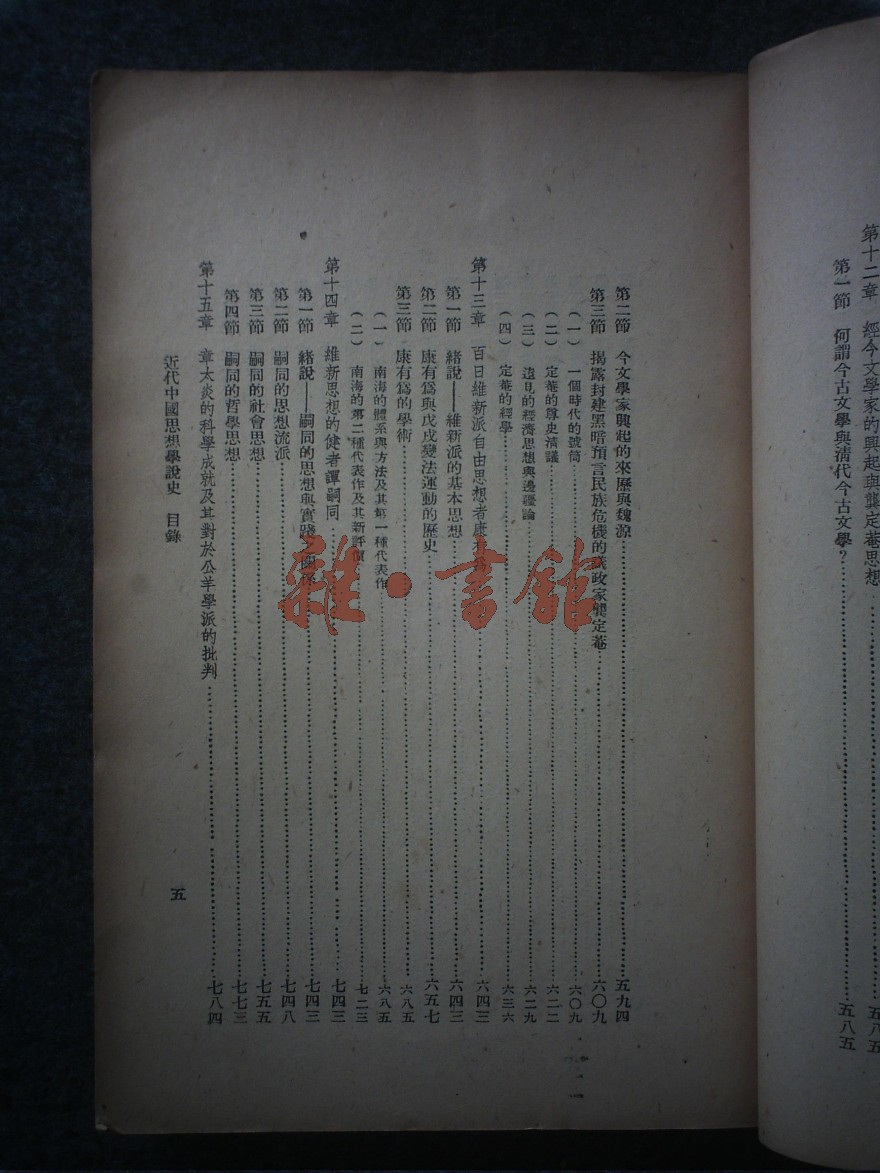 第十二章　經今文學家的興起與龔定菴思想……五八五
第一節　何謂今古文學與清代今古文學？……五八五
第二節　今文學家興起的來歷與魏源……五九四
第三節　揭露封建黑暗預言民族危機的議政家龔定菴……六〇九
（一）　一個時代的號筒……六〇九
（二）　定菴的尊史清議……六二二
（三）　遠見的經濟思想與邊疆論……六二九
（四）　定菴的經學……六三六
第十三章　百日維新派自由思想者康有爲……六四三
第一節　緒說——維新派的基本思想……六四三
第二節　康有爲與戊戌變法運動的歷史……六五七
第三節　康有爲的學術……六八五
（一）　南海的體系與方法及其第一種代表作……六八五
（二）　南海的第二種代表作及其新評價……七二三
第十四章　維新思想的健者譚嗣同……七四三
第一節　緒說——嗣同的思想與實踐之關係……七四三
第二節　嗣同的思想流派……七四八
第三節　嗣同的社會思想……七五五
第四節　嗣同的哲學思想……七七三
第十五章　章太炎的科學成就及其對於公羊學派的批判……七八四
近代中國思想學說史　目錄
五
雜·書館